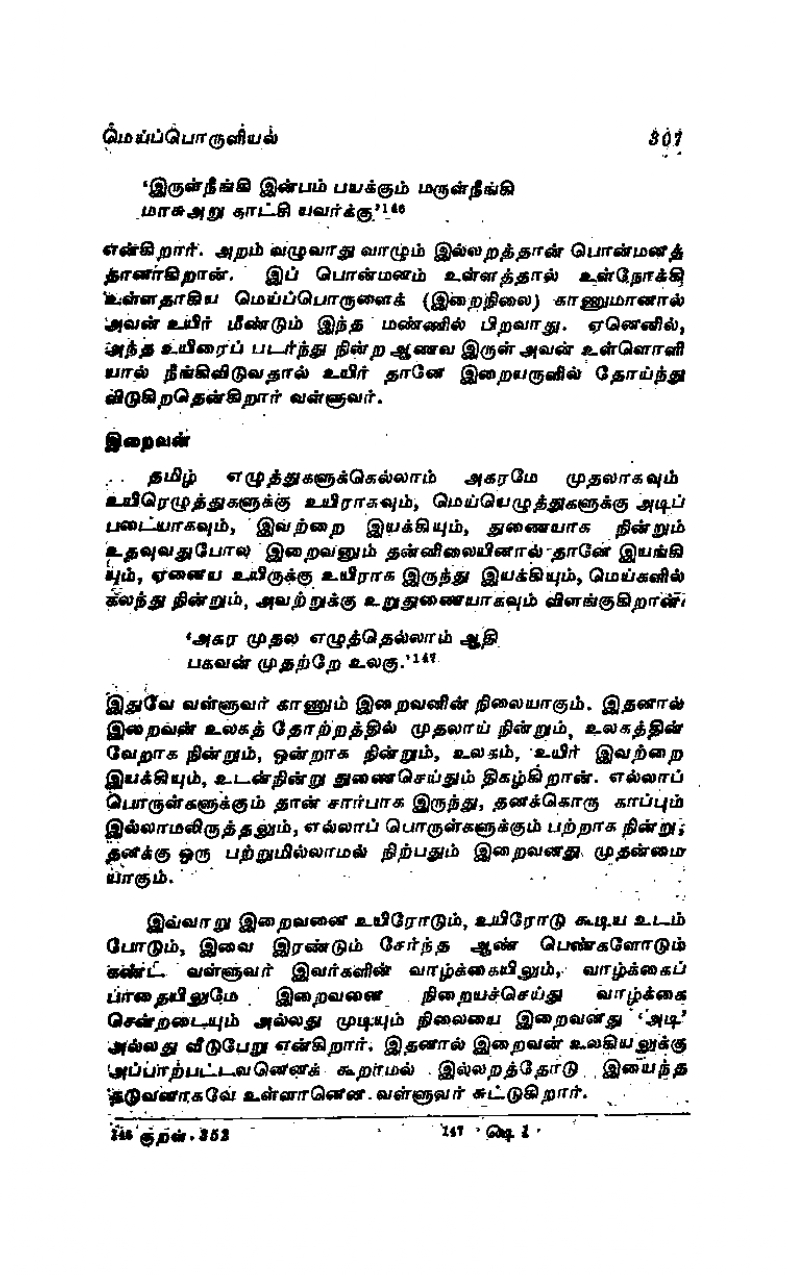 மெய்ப்பொருளியல் 307
‘இருள்நீங்கி இன்பம் பயக்கும் மருள்நீங்கி
மாசுஅறு காட்சி யவர்க்கு’146
என்கிறார். அறம் வழுவாது வாழும் இல்லறத்தான் பொன்மனத்
தானாகிறான். இப் பொன்மனம் உள்ளத்தால் உள்நோக்கி
உள்ளதாகிய மெய்ப்பொருளைக் (இறைநிலை) காணுமானால்
அவன் உயிர் மீண்டும் இந்த மண்ணில் பிறவாது. ஏனெனில்,
அந்த உயிரைப் படர்ந்து நின்ற ஆணவ இருள் அவன் உள்ளொளி
யால் நீங்கிவிடுவதால் உயிர் தானே இறையருளில் தோய்ந்து
விடுகிறதென்கிறார் வள்ளுவர்.
இறைவன்
தமிழ் எழுத்துகளுக்கெல்லாம் அகரமே முதலாகவும்
உயிரெழுத்துகளுக்கு உயிராகவும், மெய்யெழுத்துகளுக்கு அடிப்
படையாகவும், இவற்றை இயக்கியும், துணையாக நின்றும்
உதவுவதுபோல இறைவனும் தன்னிலையினால் தானே இயங்கி
யும், ஏனைய உயிருக்கு உயிராக இருந்து இயக்கியும், மெய்களில்
கலந்து நின்றும், அவற்றுக்கு உறுதுணையாகவும் விளங்குகிறான்.
‘அகர முதல எழுத்தெல்லாம் ஆதி
பகவன் முதற்றே உலகு.’147
இதுவே வள்ளுவர் காணும் இறைவனின் நிலையாகும். இதனால்
இறைவன் உலகத் தோற்றத்தில் முதலாய் நின்றும், உலகத்தின்
வேறாக நின்றும், ஒன்றாக நின்றும், உலகம், உயிர் இவற்றை
இயக்கியும், உடன்நின்று துணைசெய்தும் திகழ்கிறான். எல்லாப்
பொருள்களுக்கும் தான் சார்பாக இருந்து, தனக்கொரு காப்பும்
இல்லாமலிருத்தலும், எல்லாப் பொருள்களுக்கும் பற்றாக நின்று;
தனக்கு ஒரு பற்றுமில்லாமல் நிற்பதும் இறைவனது முதன்மை
யாகும்.
இவ்வாறு இறைவனை உயிரோடும், உயிரோடு கூடிய உடம்
போடும், இவை இரண்டும் சேர்ந்த ஆண் பெண்களோடும்
கண்ட வள்ளுவர் இவர்களின் வாழ்க்கையிலும், வாழ்க்கைப்
பாதையிலுமே இறைவனை நிறையச்செய்து வாழ்க்கை
சென்றடையும் அல்லது முடியும் நிலையை இறைவனது ‘அடி’
அல்லது வீடுபேறு என்கிறார். இதனால் இறைவன் உலகியலுக்கு
அப்பாற்பட்டவனெனக் கூறாமல் இல்லறத்தோடு இயைந்த
நடுவனாகவே உள்ளானென வள்ளுவர் சுட்டுகிறார்.
146 குறள். 352 147 ௸ 1